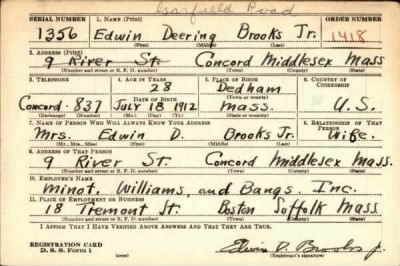 Garfield Road
SERIAL NUMBER 1. NAME (Print) ORDER NUMBER
1356 Edwin Deering Brooks Jr. 1418
(First) (Middle) (Last)
2. ADDRESS (Print)
9 River St. Concord Middlesex Mass
(Number and street or R. F. D. number) (Town) (County) (State)
3. TELEPHONE 4. AGE IN YEARS 5. PLACE OF BIRTH 6. COUNTRY OF CITIZENSHIP
28 Dedham
DATE OF BIRTH (Town or county)
Concord-837 July 18 1912 Mass. U.S.
(Exchange) (Number) (Mo.) (Day) (Yr.) (State or country)
7. NAME OF PERSON WHO WILL ALWAYS KNOW YOUR ADDRESS 8. RELATIONSHIP OF THAT PERSON
Mrs. Edwin D. Brooks Jr. Wife.
(Mr., Mrs., Miss) (First) (Middle) (Last)
9. ADDRESS OF THAT PERSON
9 River St. Concord Middlesex Mass.
(Number and street or R. F. D. number) (Town) (County) (State)
10. EMPLOYER'S NAME
Minot, Williams, and Bangs. Inc.
11. PLACE OF EMPLOYMENT OR BUSINESS
18 Tremont St. Boston Suffolk Mass
(Number and street or R. F. D. number) (Town) (County) (State)
I AFFIRM THAT I HAVE VERIFIED ABOVE ANSWERS AND THAT THEY ARE TRUE.
REGISTRATION CARD
D. S. S. Form 1
Edwin D. Brooks Jr.
(Registrant's signature)